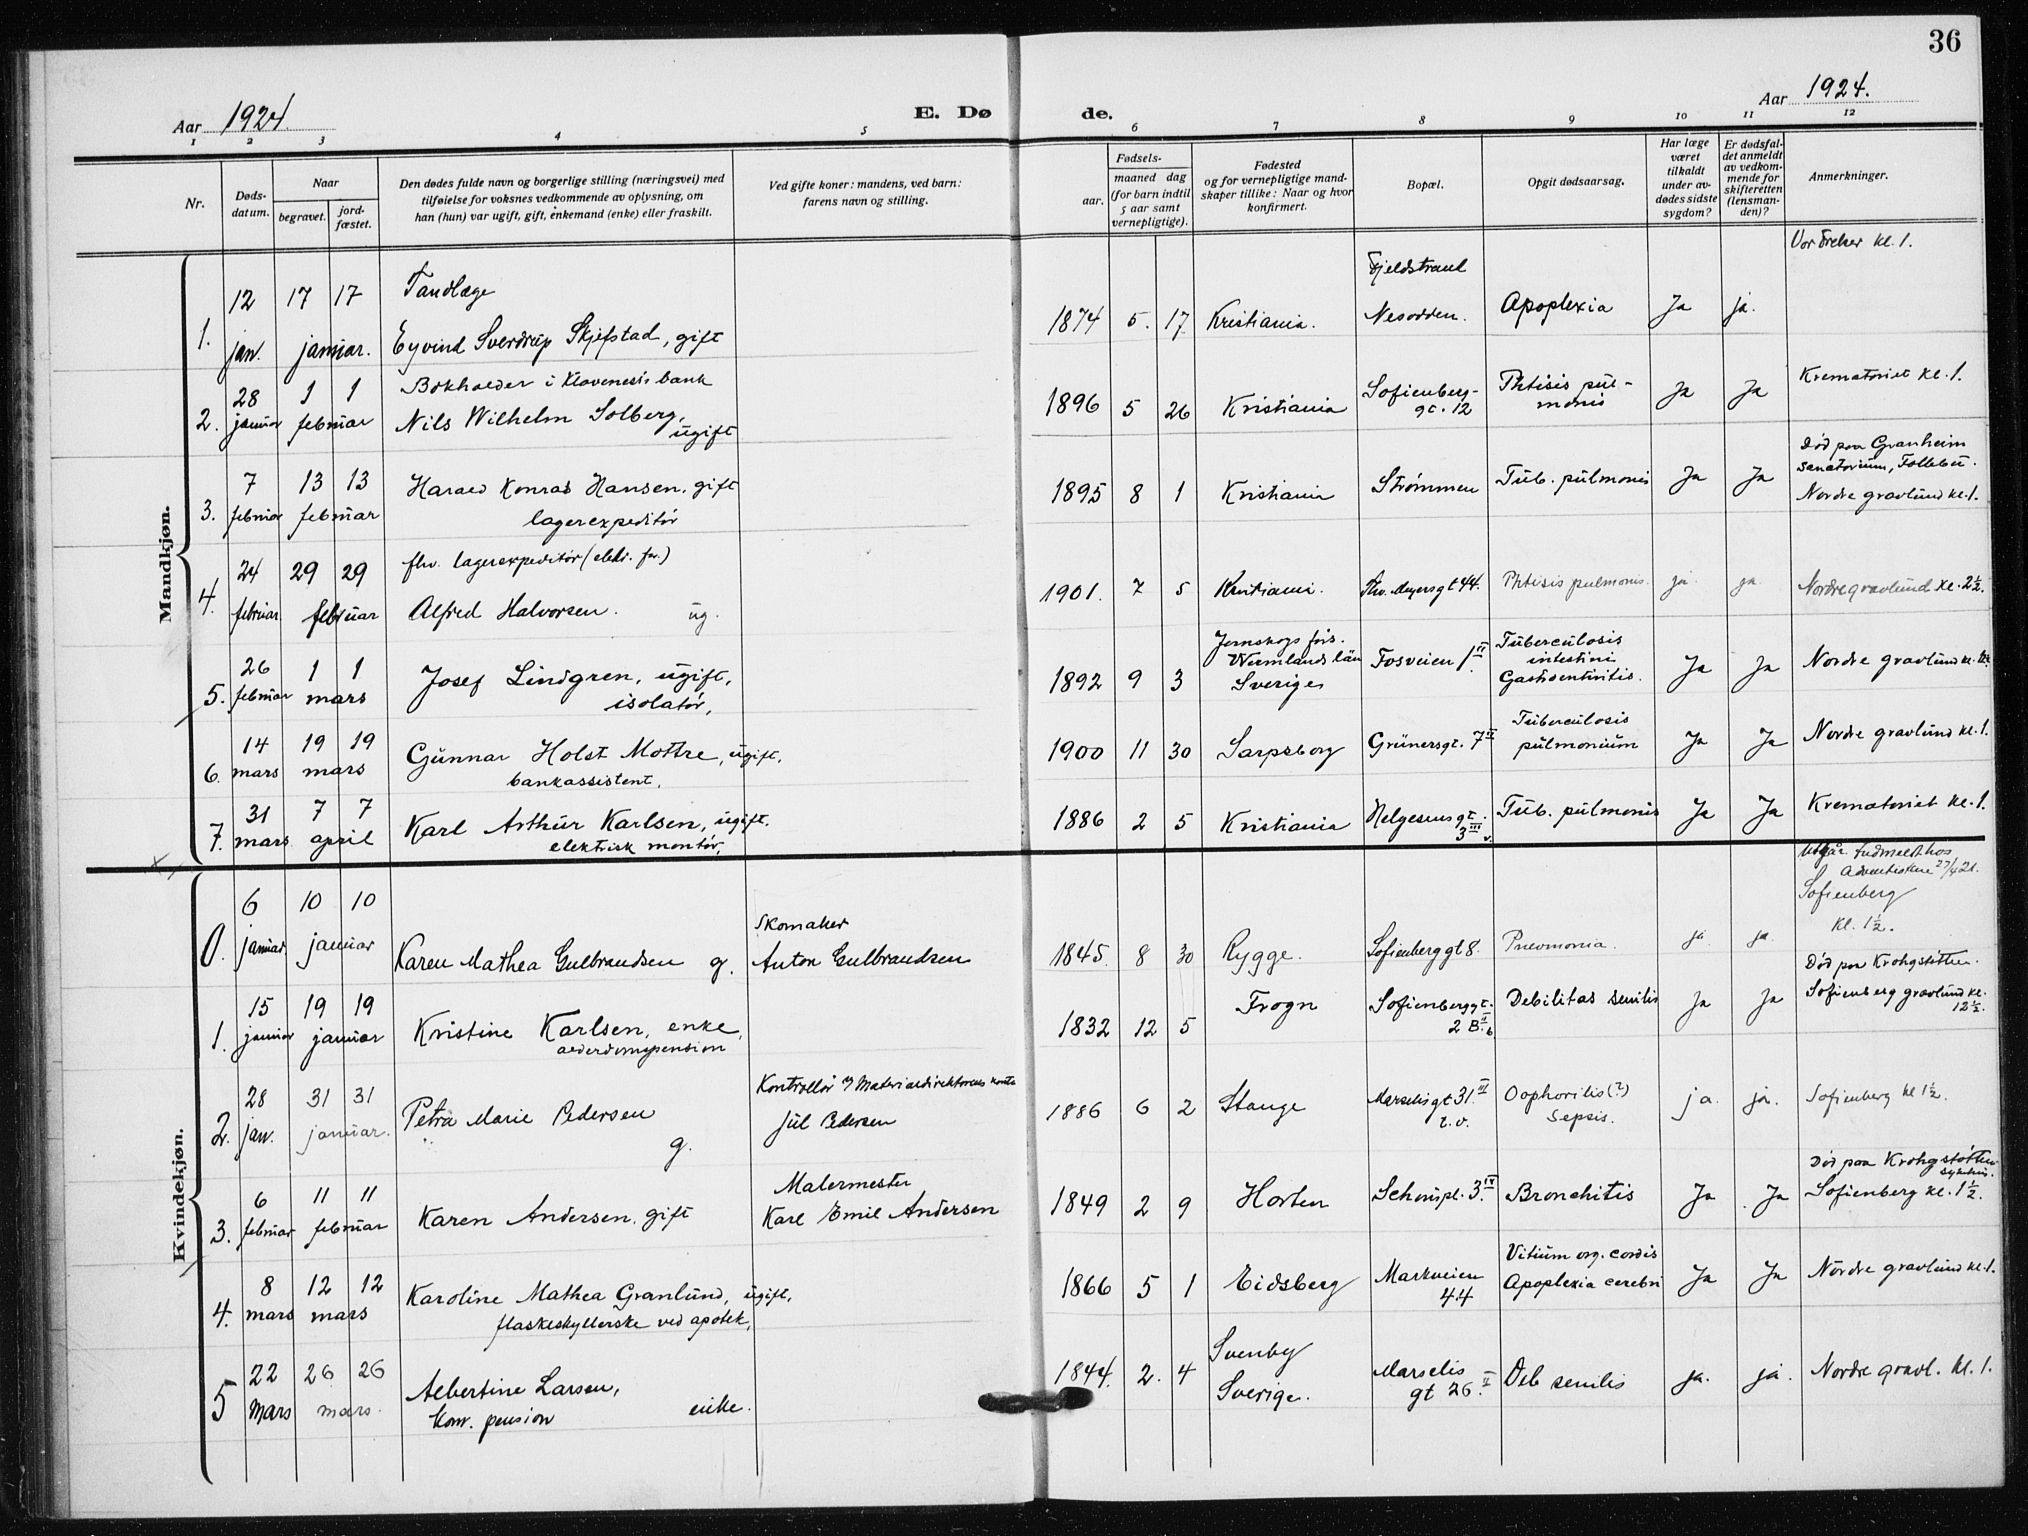 36
Aar 1924.
E. Dø
de.
Aar 1924.
1 2 3 4 5 6 7 8 9 10 11 12
Nr.
Døds-
datum.
Naar
begravet.
jord-
fæstet.
Den dødes fulde navn og borgerlige stilling (næringsvei) med
tilføielse for voksnes vedkommende av oplysning, om
han (hun) var ugift, gift, enkemand (enke) eller fraskilt.
Ved gifte koner: mandens, ved barn:
farens navn og stilling.
Fødsels-
aar.
maaned dag
(for barn indtil
5 aar samt
vernepligtige).
Fødested
og for vernepligtige mand-
skaper tillike: Naar og hvor
konfirmert.
Bopæl.
Opgit dødsaarsag.
Har læge
været
tilkaldt
under av-
dødes sidste
sygdom?
Er dødsfal-
det anmeldt
av vedkom-
mende for
skifteretten
(lensman-
den)?
Anmerkninger.
Mandkjøn.
Vor Frelser kl. 1.
Fjeldstrand
12 17 17 Tandlæge
Nesodden.
1. jan. januar. Eyvind Sverdrup Skjefstad, gift 1874 5. 17 Kristiania. Apoplexia Ja ja.
28 1 1 Bokholder i Klaveness's bank Sofienberg- Phtisis pul- Krematoriet kl. 1.
2. januar februar Nils Wilhelm Solberg, 1896 5 26 Kristiania gt. 12 monis Ja Ja
ugift
Død paa Granheim
7 13 13 Harald Konrad Hansen, gift sanatorium, Follebu.
3. februar februar lagerexpeditør 1895 8 1 Kristiania Strømmen Tub. pulmonis Ja Ja Nordre gravlund kl. 1.
24 29 29 fhv. lagerexpeditør
4. februar februar Alfred Halvorsen. ug. 1901. 7 5 Kristiania. Thv. Meyersgt 44. Phtisis pulmonis. ja. ja. Nordre gravlund kl. 2½.
Jernskogs förs. Tuberculosis
26 1 1 Josef Lindgren, ugift, Wermlands län Fosveien 1 II intestini Nordre gravlund kl.
5. februar mars isolatør, 1892 9 3 Sverige Gastroentiritis. Ja Ja
14 19 19 Gunnar Holst Mottre, ugift, Tuberculosis Nordre gravlund kl. 1.
6. mars mars bankassistent. 1900 11 30 Sarpsborg Grünersgt. 7 IV pulmonium Ja Ja
31 7 7 Karl Arthur Karlsen, ugift. Helgesensgt. Tub. pulmonis Krematoriet kl. 1.
7. mars april elektrisk montør, 1886 2 5 Kristiania 3 III v. Ja Ja
Kvindekjøn.
Utgår. Indmeldt hos
Adventistene 27/4 21.
6 10 10 Skomaker Sofienberg
kl. 1½.
0. januar januar Karen Mathea Gulbrandsen g. Anton Gulbrandsen 1845. 8 30 Rygge. Sofienberggt 8. Pneomonia. ja ja.
Død paa Krohgstøtten.
15 19 19 Frogn Sofienberggt. Debilitas senilis Ja Ja Sofienberg gravlund kl.
1. januar januar Kristine Karlsen, enke, 1832 12 5 2 B. II b 12½.
alderdomspension
28 31 31 Kontrollør v/ Materialdirektørens kontor
2. jan. januar. Petra Marie Pedersen g. Jul Pedersen 1886 6 2 Stange Marselisgt 31. III t.v. Oophoritis (?) Sepsis. ja. ja. Sofienberg kl 1½.
Død paa Krohgstøtten
sykehus.
6 11 11 Malermester
3. februar februar Karen Andersen, gift Karl Emil Andersen 1849 2 9 Horten Schouspl. 3. IV Bronchitis Ja Ja Sofienberg kl. 1½.
Vitium org. cordis
8 12 12 Karoline Mathea Granlund, ugift, Markveien Nordre gravlund kl. 1.
4. mars mars flaskeskyllerske ved apotek, 1866 5 1 Eidsberg 44 Apoplexia cerebri Ja Ja
22 26 26 Albertine Larsen, Svenby Marselis Nordre gravl. kl. 1.
5 mars mars. Kom. pension enke. 1844. 2. 4 Sverige. gt 26. II Deb senilis ja. ja.